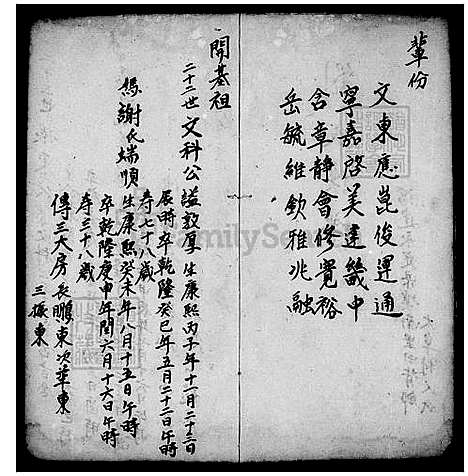 輩份
文東應崑俊運通
寧嘉啓美達畿中
含章静會修寬裕
岳毓維欽雅兆融
開基祖
二十二世 文科公謚敦厚生康熙丙子年十一月二十三日
辰時卒乾隆癸巳年五月二十二日午時
寿七十八歲
媽謝氏端順生康熙癸未年八月十五日午時
卒乾隆庚申年閏六月十六日午時
寿三十八歲
傳三大房長鵬東次華東
三振東
FamilySearch